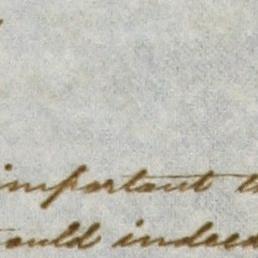 important
could indeed